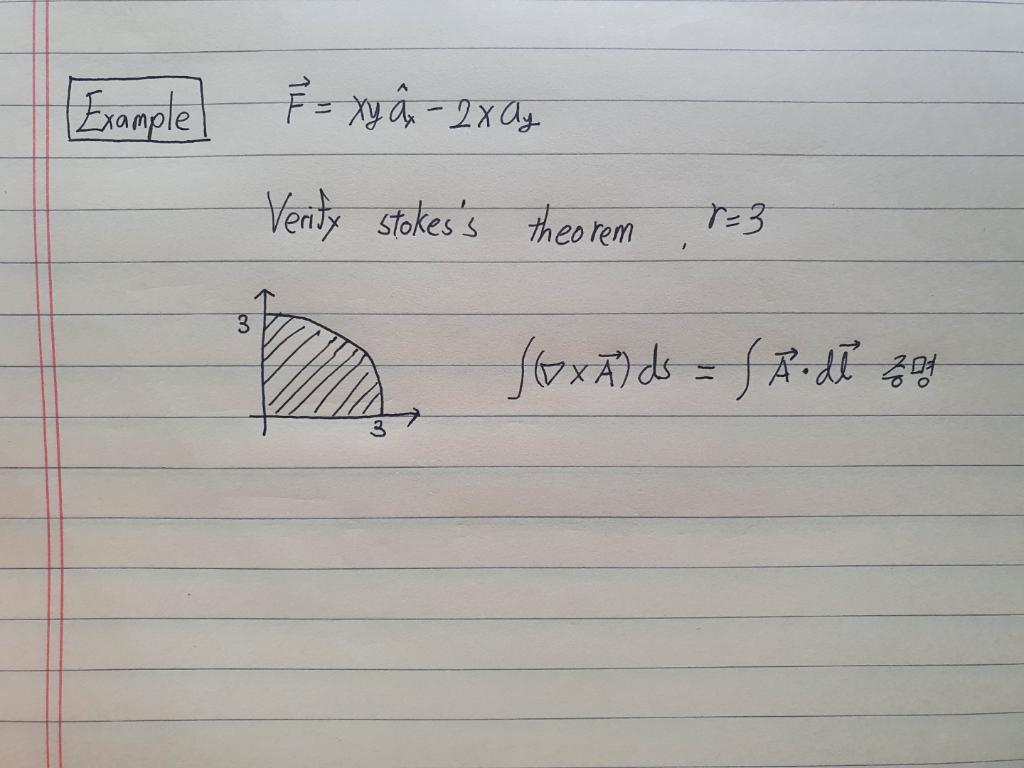 Example F⃗ = xy âx - 2x ay
Verify stokes's theorem , r=3
3
∫(∇×A⃗) ds = ∫ A⃗·dl⃗ 증명
3